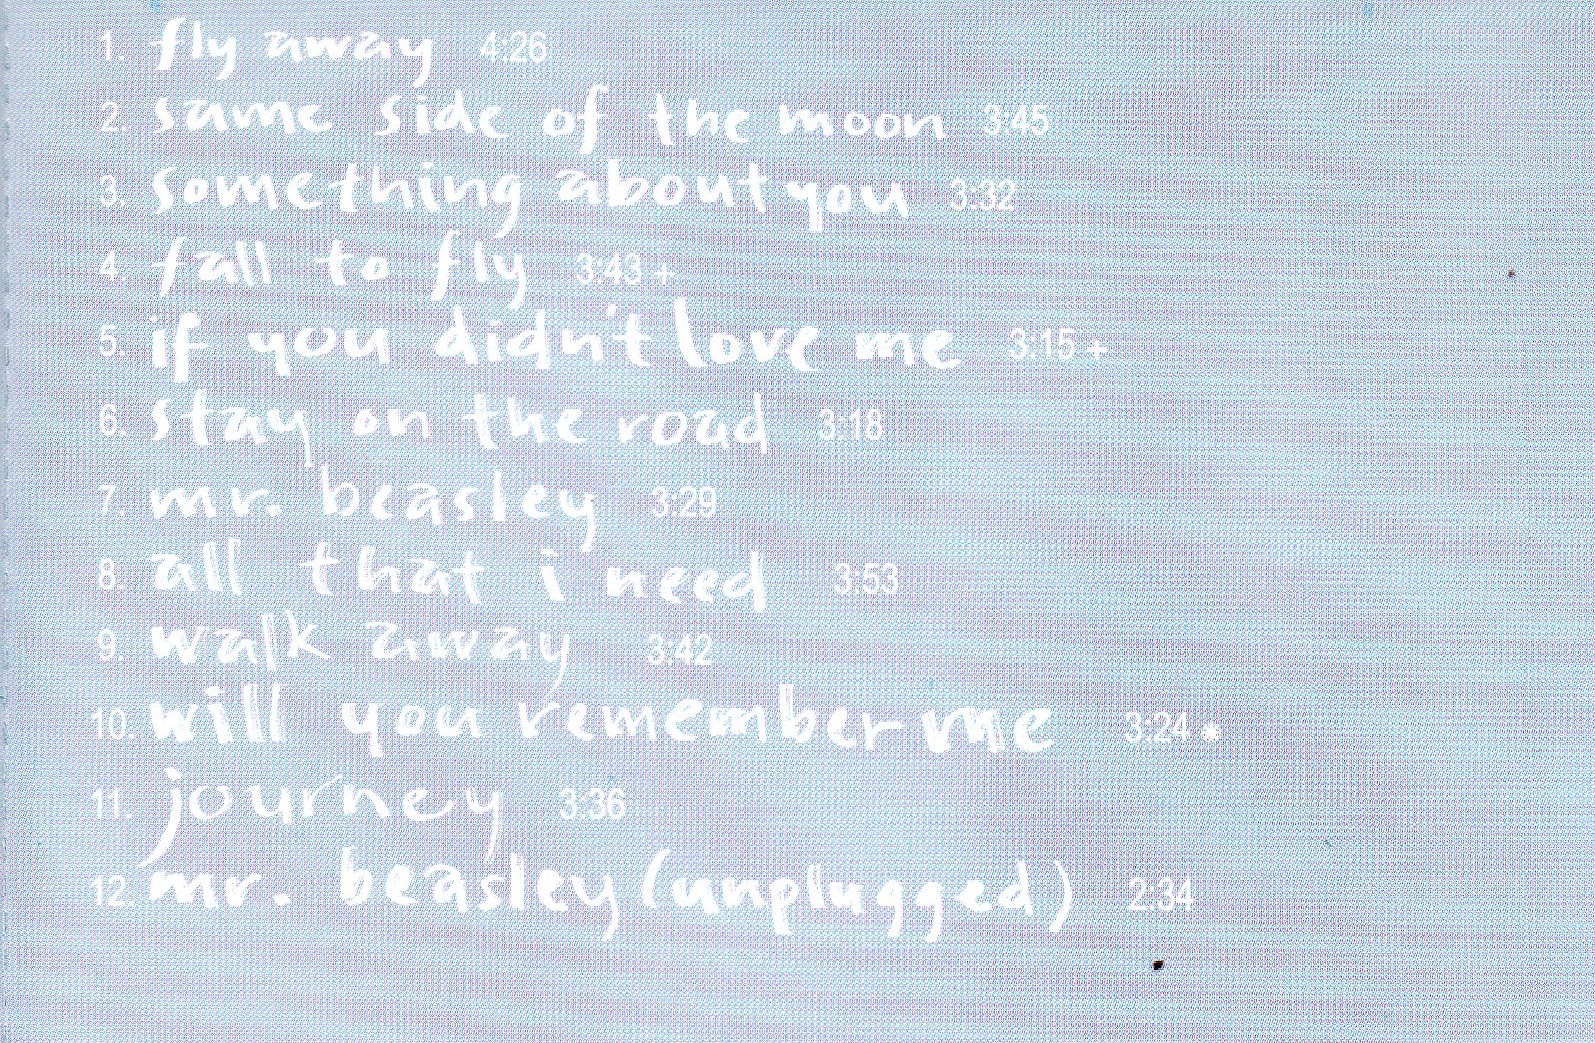 1. fly away 4:26
2. same side of the moon 3:45
3. something about you 3:32
4. fall to fly 3:43 +
5. if you didn't love me 3:15 +
6. stay on the road 3:18
7. mr. beasley 3:29
8. all that i need 3:53
9. walk away 3:42
10. will you remember me 3:24 *
11. journey 3:36
12. mr. beasley (unplugged) 2:34